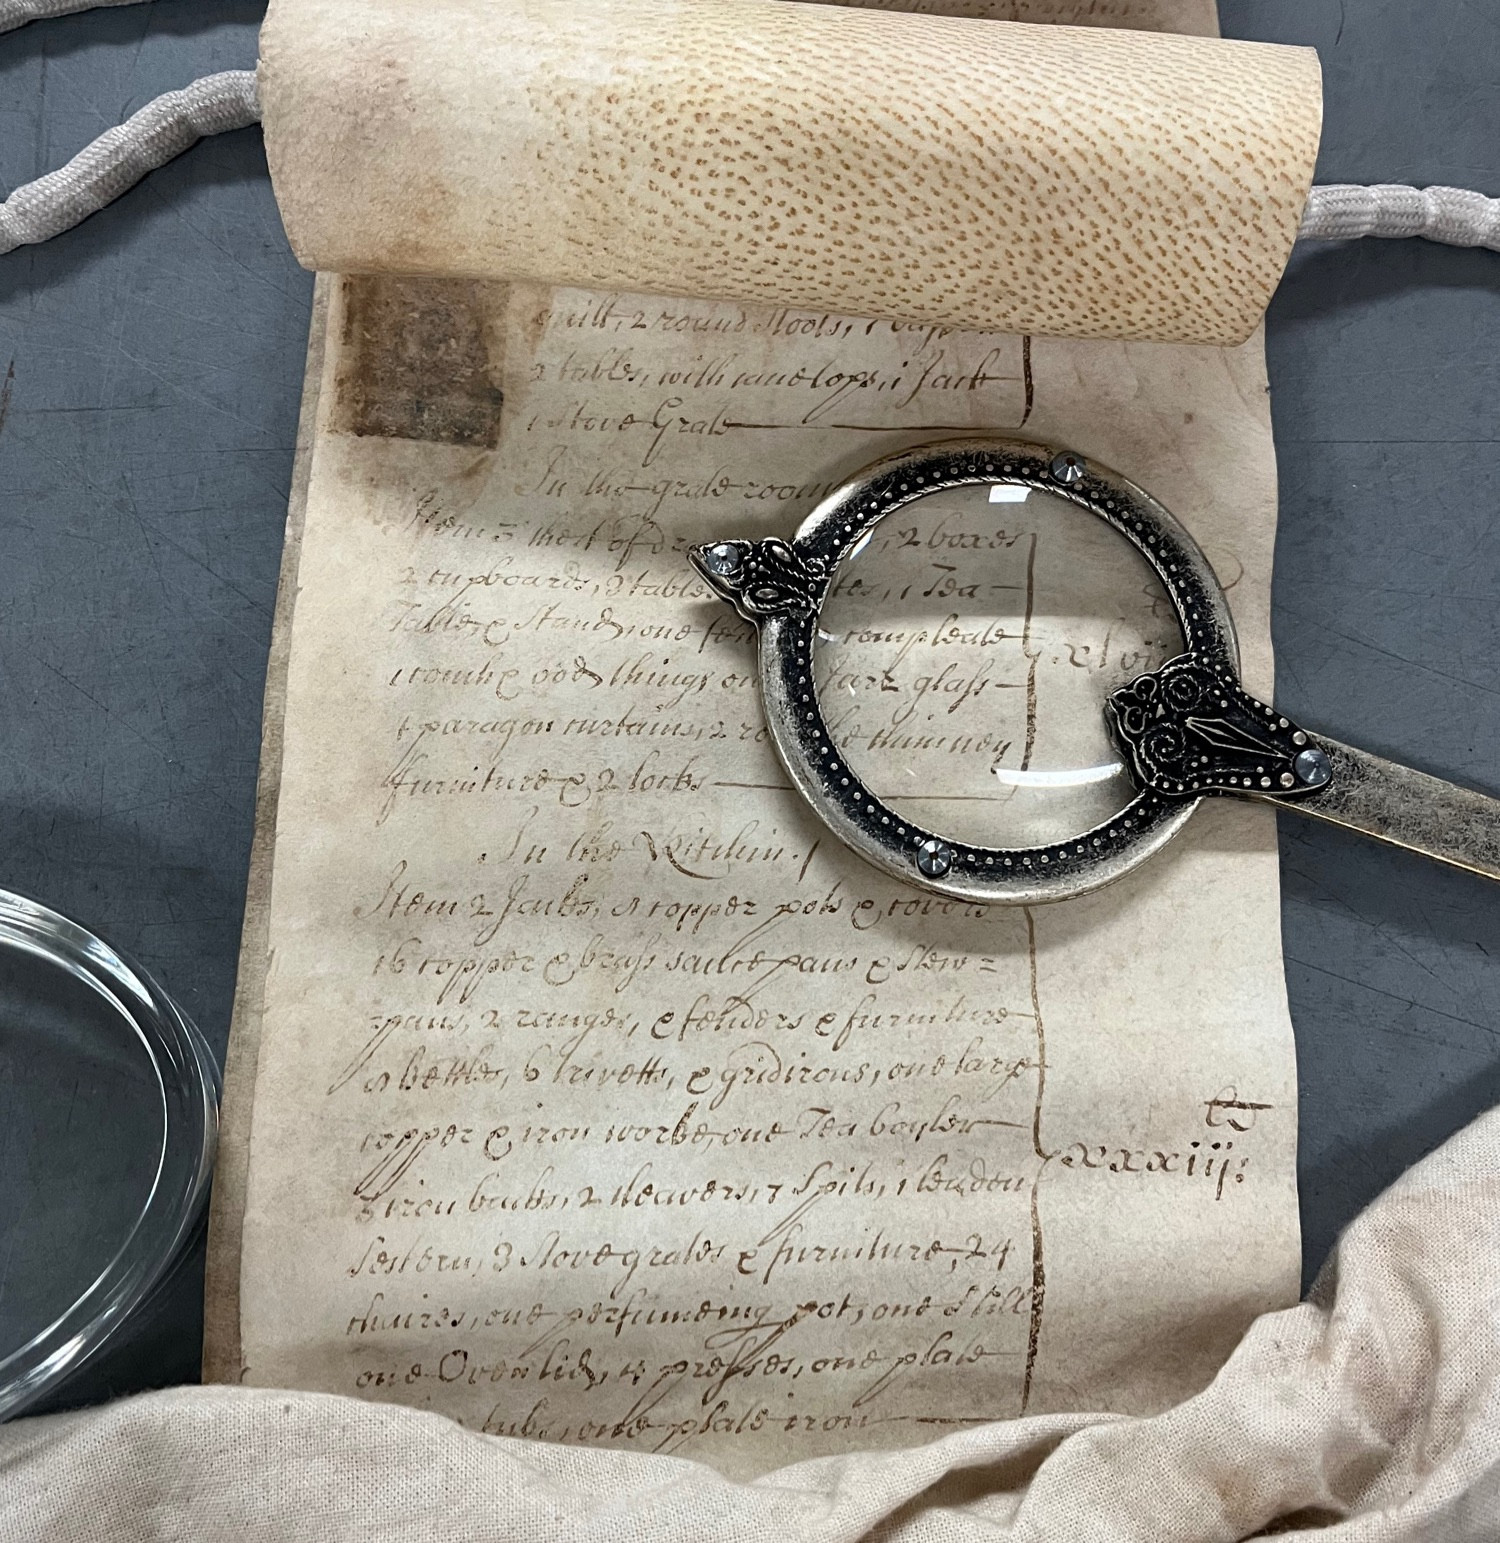 quilt, 2 round stools, 1
2 tables, with cane tops, 1 Jack
1 Stove Grate
In the grate room
Item 3 chest of 2 boxes
2 cupboards, 3 table 1 Tea
Table, & Stand, one compleate
1 comb & odd things on glass
1 paragon curtains, 2 chimney
furniture & 2 locks
In the Kitchin.
Item 2 Jacks, 9 copper pots & covers
16 copper & brass sauce pans & stew=
=pans, 2 ranges, & fenders & furniture
9 kettles, 6 trivetts, & gridirons, one large
copper & iron worke, one Tea boyler
xxxiij:
3 iron backs, 2 cleavers, 7 Spits, 1 leaden
Sestern, 3 stove grates & furniture, 24
chaires, one perfumeing pot, one Still
one Oven lid, 4 presses, one plate
tubs, one plate iron